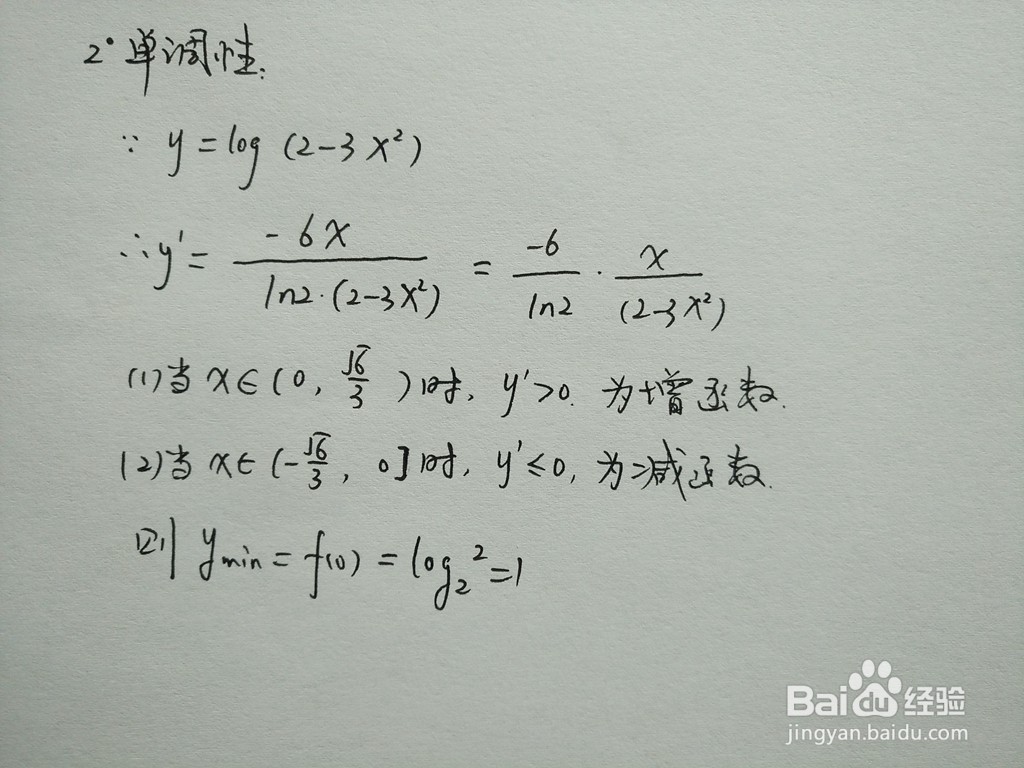 2° 单调性:
∵ y = log (2-3x²)
∴ y' = -6x / ln2·(2-3x²) = -6/ln2 · x/(2-3x²)
(1)当 x∈(0, √6/3 )时, y'>0. 为增函数.
(2)当 x∈(-√6/3, 0]时, y'≤0, 为减函数.
则 ymin = f(0) = log₂² = 1
Baidu 经验
jingyan.baidu.com